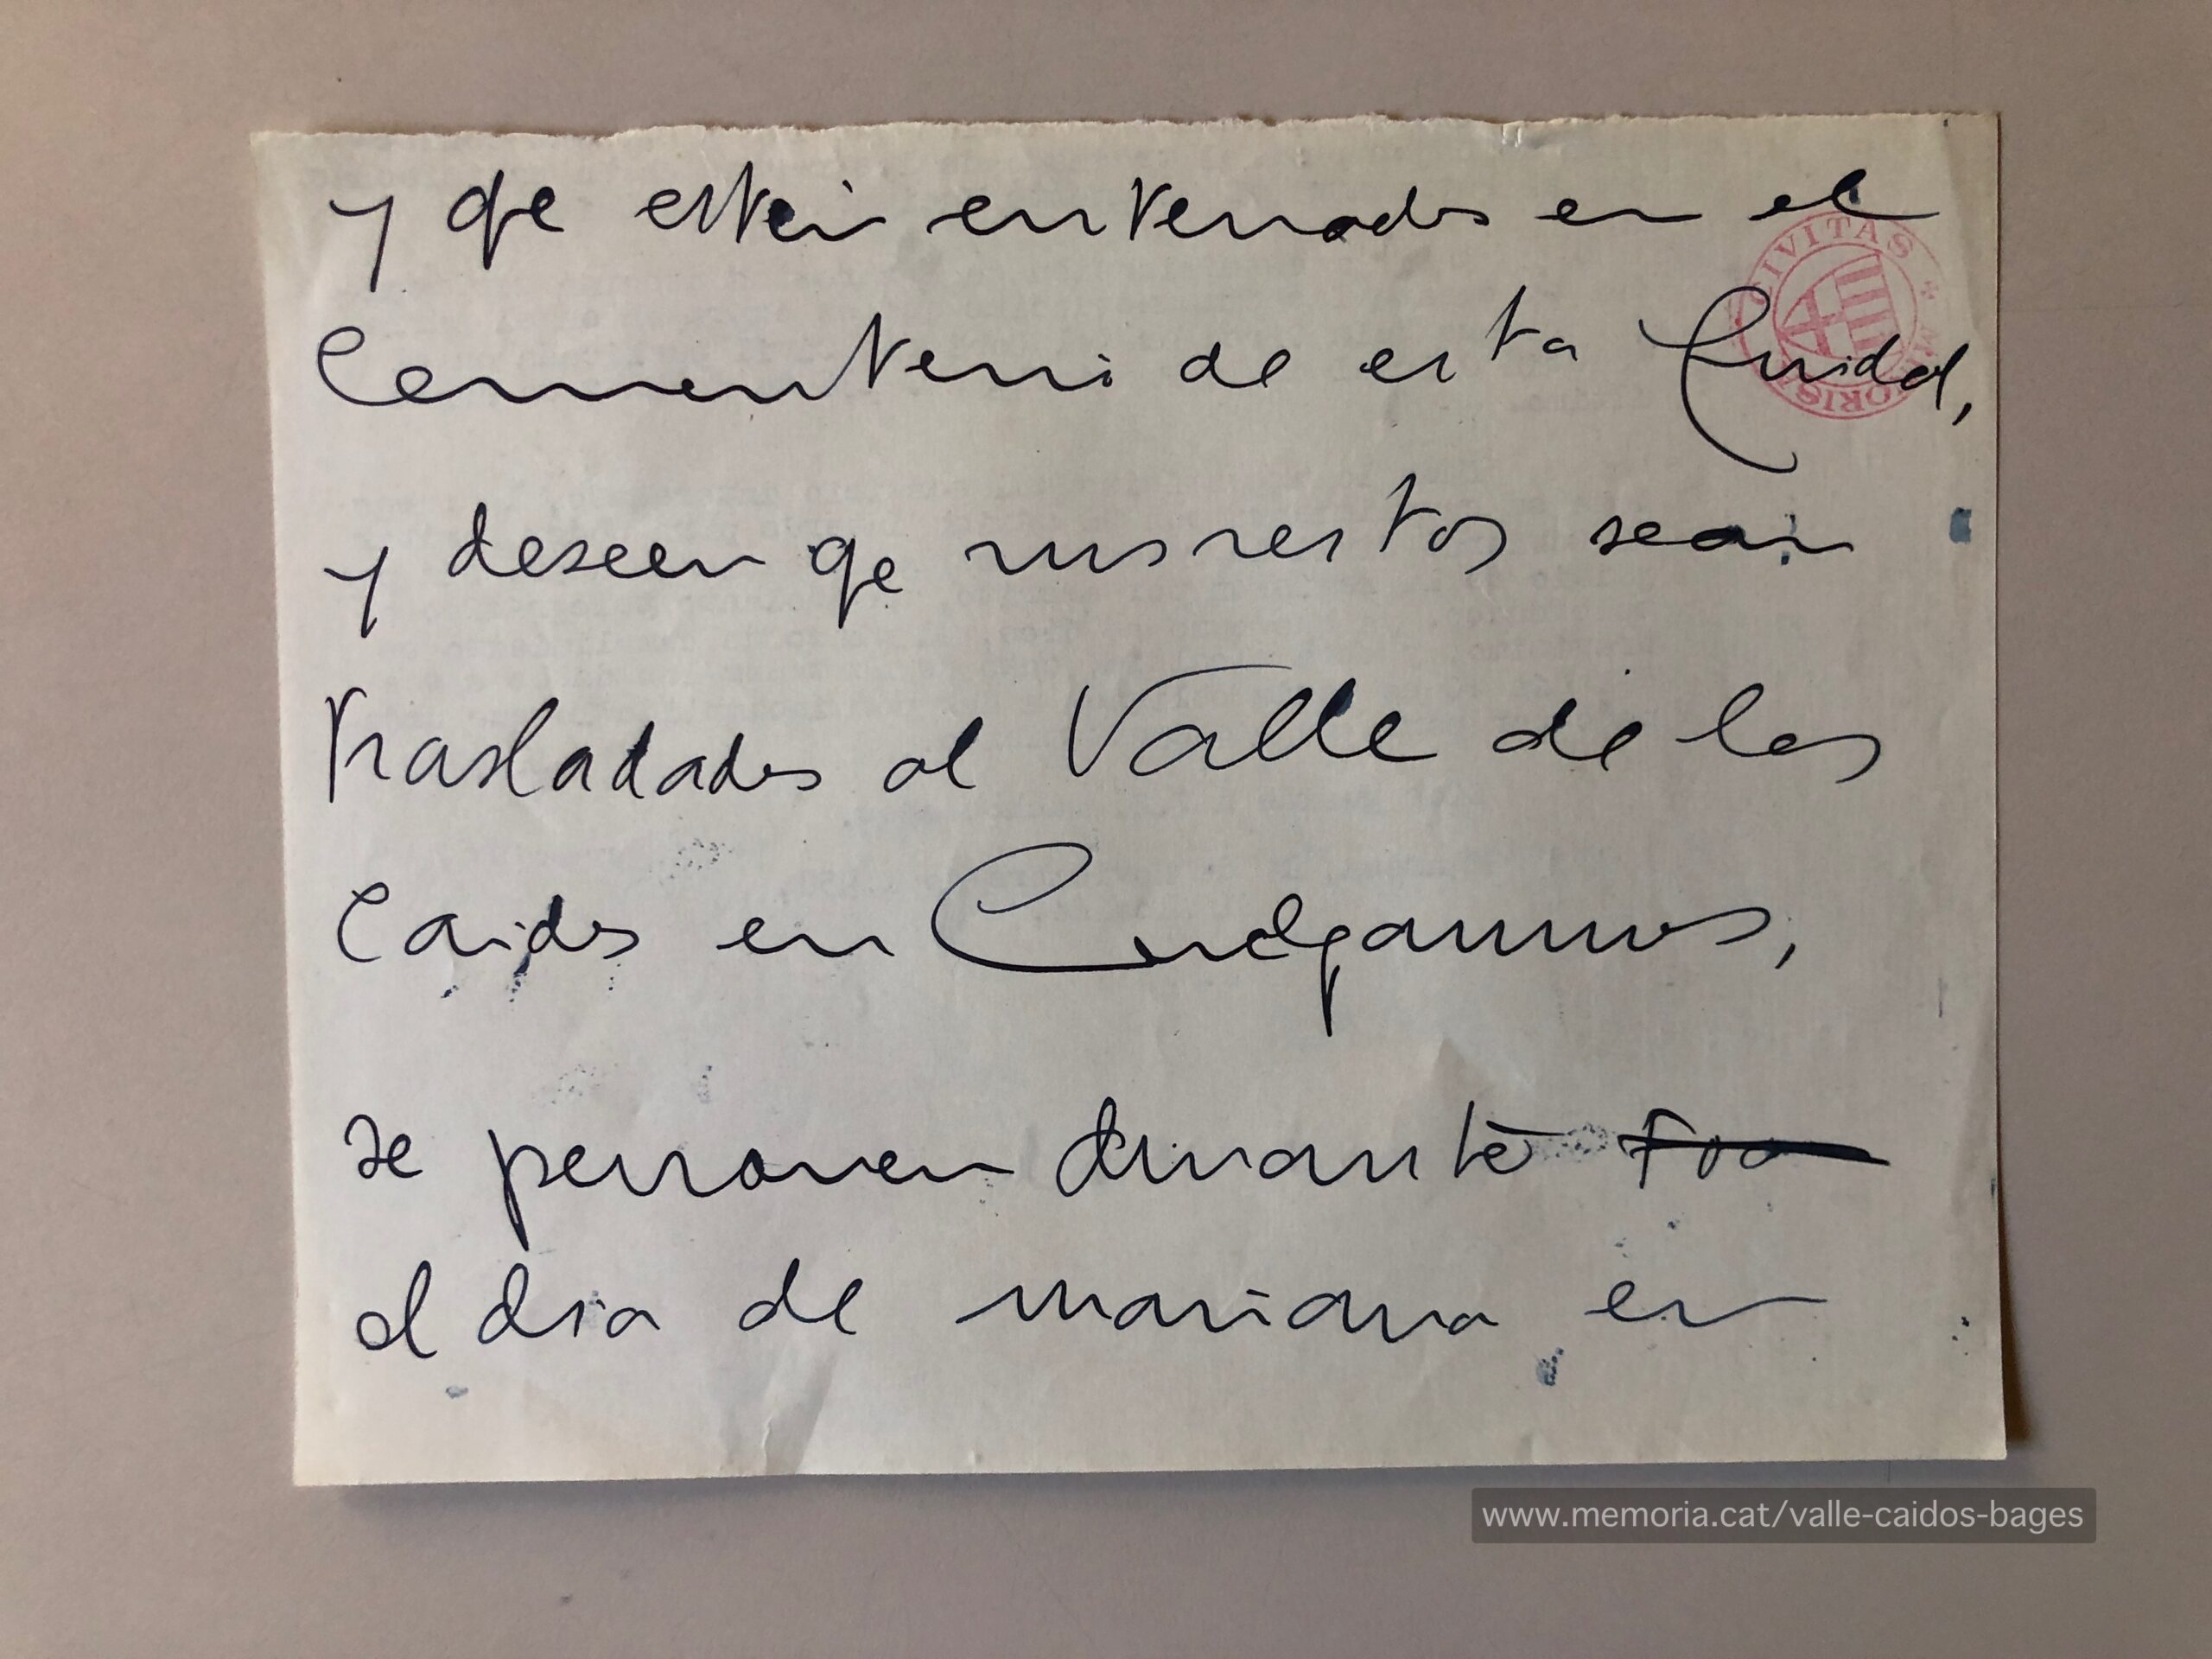 y qe esten enterrados en el
CIVITAS MINORISA
Cementeri de esta Ciudad,
y deseen qe sus restos sean
trasladados al Valle de los
Caidos en Cuelgamuros,
se personen durante
el dia de mañana en
www.memoria.cat/valle-caidos-bages